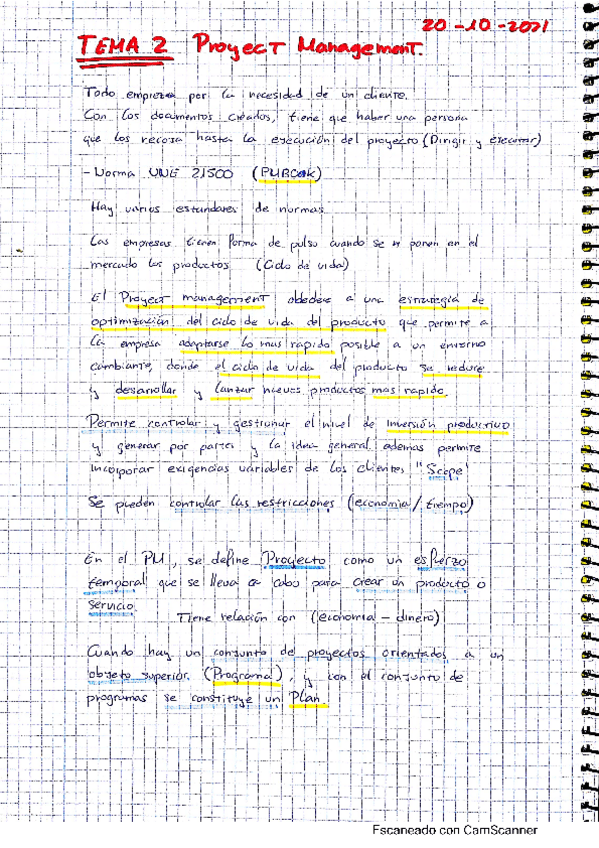 20-10-2021
TEMA 2 Proyect Management.
Todo empieza por la necesidad de un cliente.
Con los documentos creados, tiene que haber una persona
que los recoja hasta la ejecución del proyecto (Dirigir y ejecutar)
- Norma UNE 21500 (PMBook)
Hay varios estandares de normas
Las empresas tienen forma de pulso cuando se ponen en el
mercado los productos (Ciclo de vida)
El Proyect management obedece a una estrategia de
optimización del ciclo de vida del producto que permite a
la empresa adaptarse lo mas rapido posible a un entorno
cambiante, donde el ciclo de vida del producto se reduce
y desarrollar y lanzar nuevos productos mas rapido
Permite controlar y gestionar el nivel de inversión productivo
y generar por partes y la idea general ademas permite
incorporar exigencias variables de los clientes "Scope"
Se pueden controlar las restricciones (economia / tiempo)
En el PM, se define Proyecto como un esfuerzo
temporal que se lleva a cabo para crear un producto o
servicio.
Tiene relación con (economia - dinero)
Cuando hay un conjunto de proyectos orientados a un
objeto superior. (Programa), y con el conjunto de
programas se constituye un Plan.
Escaneado con CamScanner